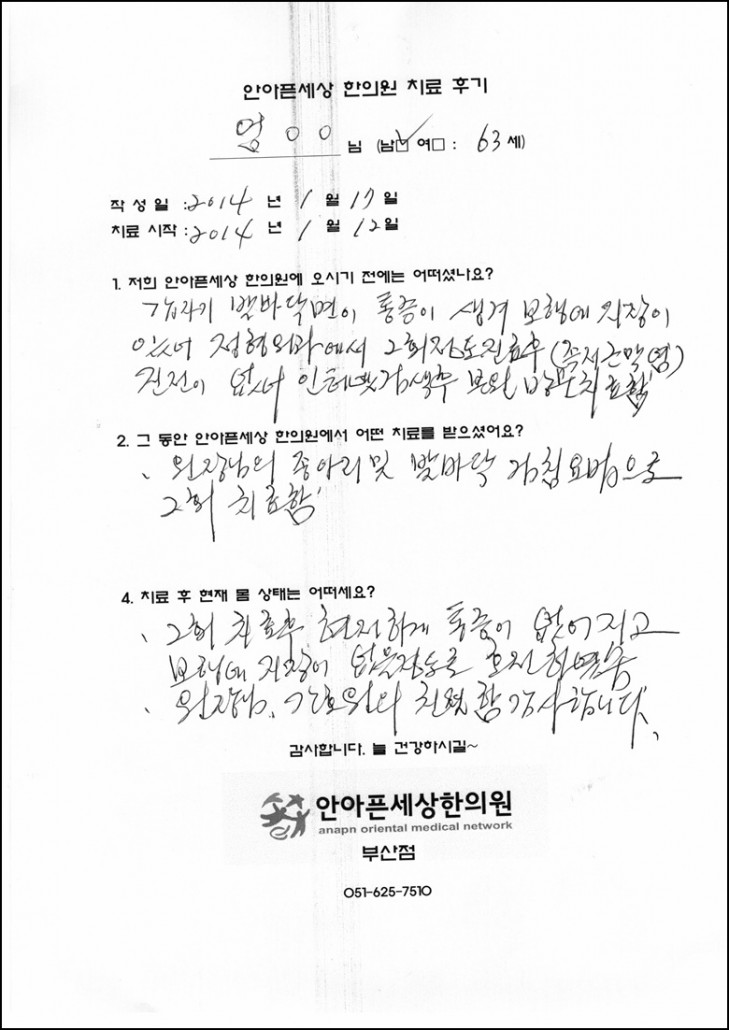 안아픈세상 한의원 치료 후기
엄 ○ ○ 님 (남☑ 여□ : 63 세)
작 성 일 : 2014 년 1 월 17 일
치료 시작 : 2014 년 1 월 12 일
1. 저희 안아픈세상 한의원에 오시기 전에는 어떠셨나요?
갑자기 발바닥면이 통증이 생겨 보행에 지장이
있어 정형외과에서 2회정도진료후 (족저근막염)
진전이 없어 인터넷검색후 본원 방문치료함
2. 그 동안 안아픈세상 한의원에서 어떤 치료를 받으셨어요?
、 원장님의 종아리 및 발바닥 침요법으로
2회 치료함
4. 치료 후 현재 몸 상태는 어떠세요?
、 2회 치료후 현저하게 통증이 없어지고
보행에 지장이 없을정도로 호전하였음
、 원장님, 간호원의 친절함 감사합니다.
감사합니다. 늘 건강하시길~
안아픈세상한의원
anapn oriental medical network
부산점
051-625-7510